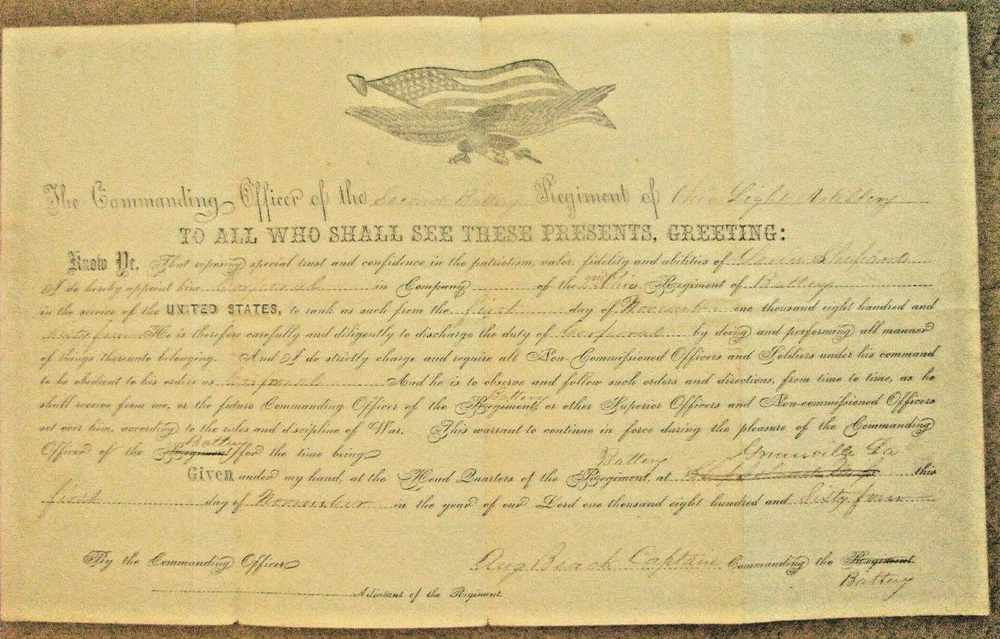 The Commanding Officer of the Second Battery Regiment of Ohio Light Artillery
TO ALL WHO SHALL SEE THESE PRESENTS, GREETING:
Know Ye, That reposing special trust and confidence in the patriotism, valor, fidelity and abilities of
I do hereby appoint him Corporal in Company of the Regiment of Battery
in the service of the UNITED STATES, to rank as such from the first day of November one thousand eight hundred and
sixty four He is therefore carefully and diligently to discharge the duty of Corporal by doing and performing all manner
of things thereunto belonging. And I do strictly charge and require all Non-Commissioned Officers and Soldiers under his command
to be obedient to his orders as Corporal And he is to observe and follow such orders and directions, from time to time, as he
Battery
shall receive from me, or the future Commanding Officer of the Regiment, or other Superior Officers and Non-commissioned Officers
set over him, according to the rules and discipline of War. This warrant to continue in force during the pleasure of the Commanding
Battery
Officer of the Regiment, for the time being
Battery La
Given under my hand, at the Head Quarters of the Regiment, at this
first day of November in the year of our Lord one thousand eight hundred and Sixty four
By the Commanding Officer
Aug Beach Captain Commanding the Regiment.
Battery
Adjutant of the Regiment.